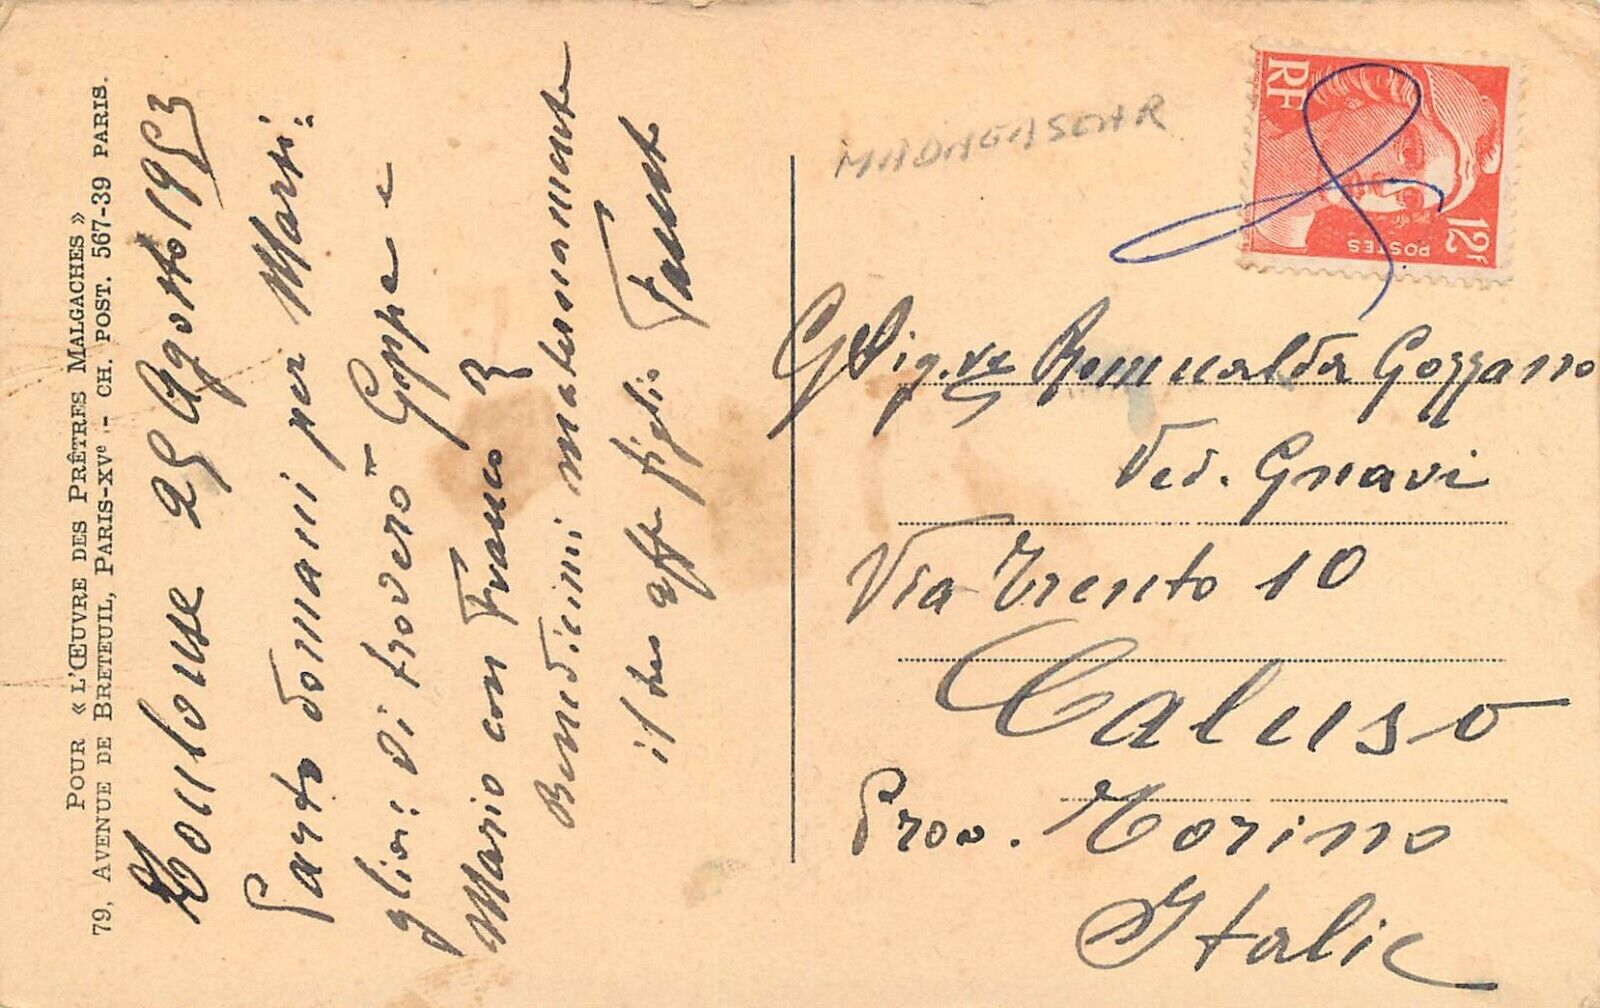 POUR « L'ŒUVRE DES PRÊTRES MALGACHES »
79, AVENUE DE BRETEUIL, PARIS-XVe - CH. POST. 567-39 PARIS.
Toulouse 25 Agosto 1953
Parto domani per Marsi:
glia: vi troverò Geppe e
Mario con Franco
Benedicimi maternamente
il tuo aff figlio Fausto
MADAGASCAR
RF
POSTES
12F
Romualda Gozzano
Ved. Gnavi
Via Trento 10
Caluso
Prov. Torino
Italie